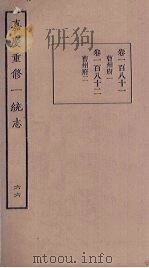 嘉慶重修一統志
卷一百八十一
曹州府一
卷一百八十二
曹州府二
六六